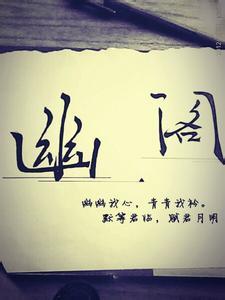 幽阁
幽幽我心，青青我衿。
默等君临，赋君月明